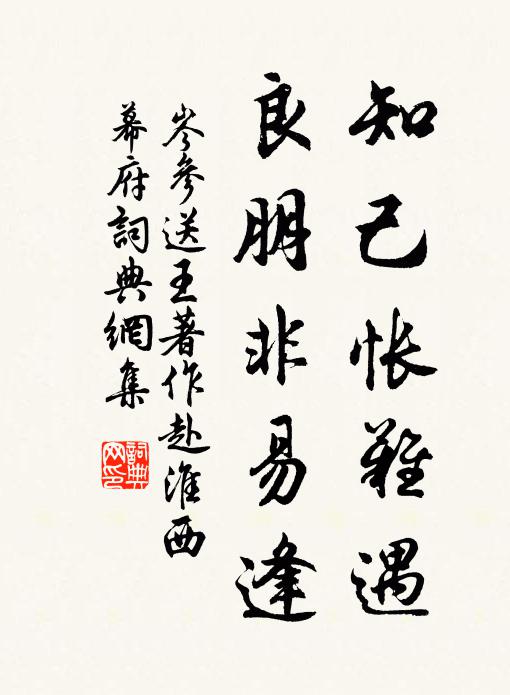 知己怅難遇
良朋非易逢
岑參送王著作赴淮西
幕府詞典網集
詞典
网印